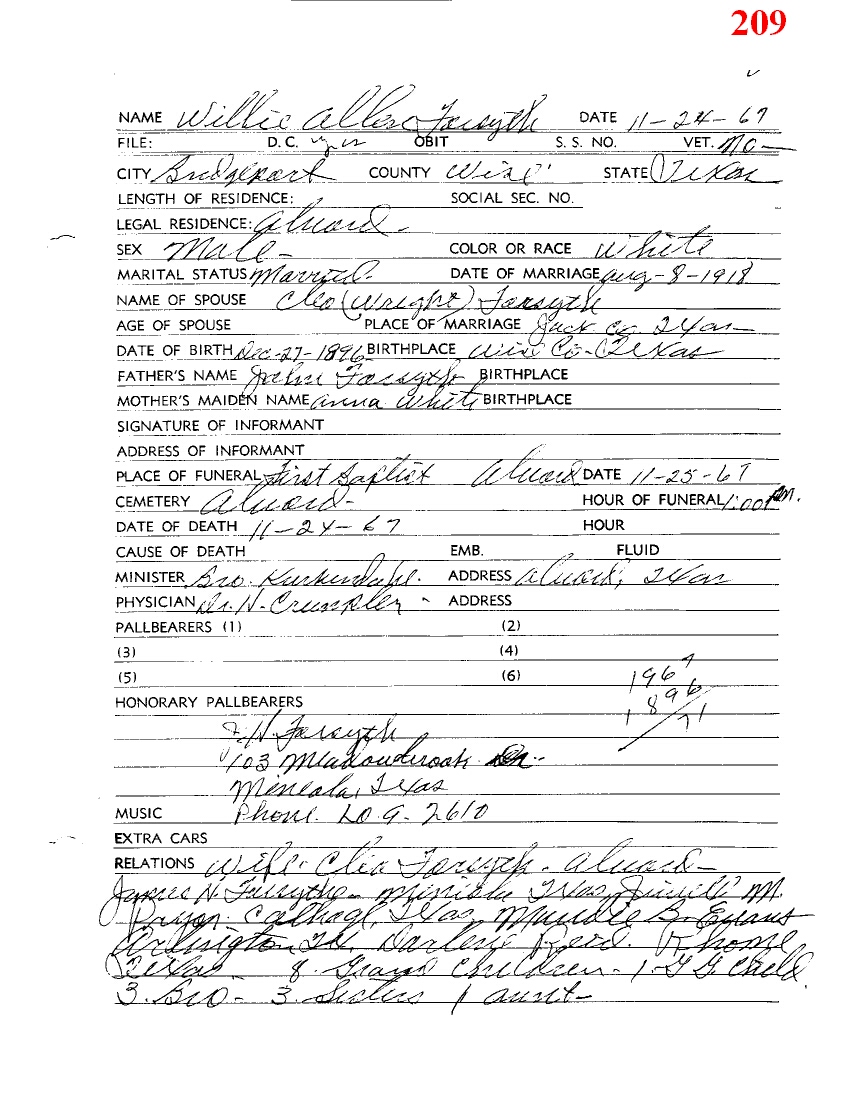 209
NAME Willie Allen Forsyth DATE 11-24-67
FILE: D.C. yes OBIT S. S. NO. VET. No
CITY Bridgeport COUNTY Wise STATE Texas
LENGTH OF RESIDENCE: SOCIAL SEC. NO.
LEGAL RESIDENCE: Alvord
SEX Male COLOR OR RACE White
MARITAL STATUS Married. DATE OF MARRIAGE Aug-8-1918
NAME OF SPOUSE Cleo (Wright) Forsyth
AGE OF SPOUSE PLACE OF MARRIAGE Jack Co Texas
DATE OF BIRTH Dec-27-1896 BIRTHPLACE Wise Co- Texas
FATHER'S NAME John Forsyth BIRTHPLACE
MOTHER'S MAIDEN NAME Anna White BIRTHPLACE
SIGNATURE OF INFORMANT
ADDRESS OF INFORMANT
PLACE OF FUNERAL First Baptist Alvord DATE 11-25-67
CEMETERY Alvord- HOUR OF FUNERAL 1:00 PM.
DATE OF DEATH 11-24-67 HOUR
CAUSE OF DEATH EMB. FLUID
MINISTER Bro. ADDRESS Alvord, Texas
PHYSICIAN Dr. H. Crumpler - ADDRESS
PALLBEARERS (1) (2)
(3) (4)
(5) (6) 1967
HONORARY PALLBEARERS 1896
71
J.N. Forsyth
103 Meadowbrook Dr.
Mineola, Texas
MUSIC Phone. LO.9-2610
EXTRA CARS
RELATIONS Wife- Cleo Forsyth- Alvord-
James N. Forsythe- Mineola Texas, M.
Pryor. Texas, B. Evans
Arlington Darlene Reid. Rhome
Texas 8. Grand Children- 1. G G. Child
3. Bro- 3. Sisters 1 aunt-